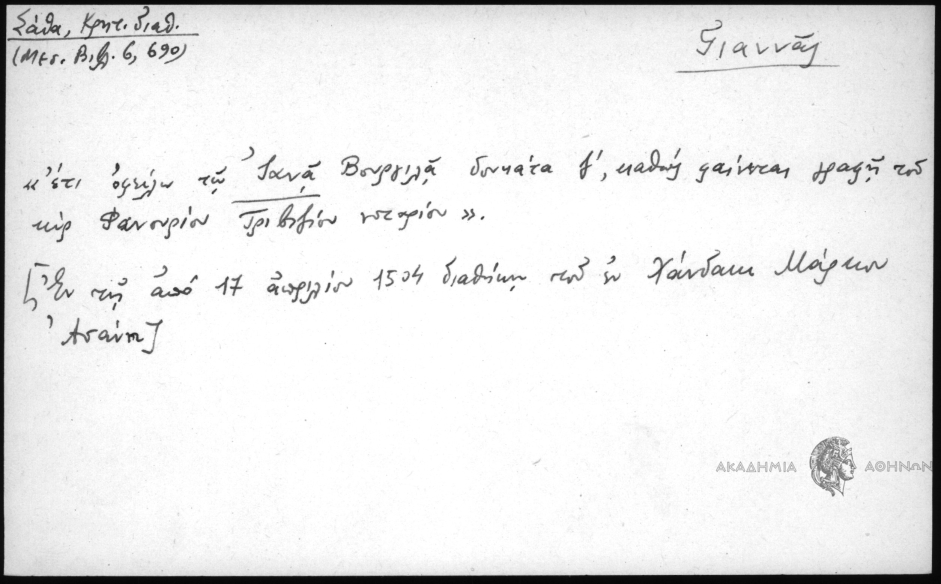 Σάθα, Κρητ. διαθ.
(Μεσ. Βιβ. 6, 690)
Γιαννᾶς
κ' ἔτι ὀφείλω τῷ Ἰανᾷ Βουργιλᾷ δουκάτα γ', καθὼς φαίνεται γραφῇ τοῦ
κὺρ Φανουρίου Τριβιζίου νοταρίου ».
[Ἐν τῇ ἀπό 17 ἀπριλίου 1504 διαθήκῃ τοῦ ἐν Χάνδακι Μάρκου
Ἀσάνη]
ΑΚΑΔΗΜΙΑ ΑΘΗΝΩΝ